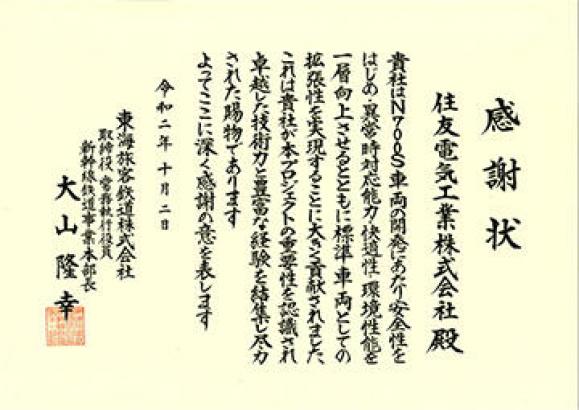 感謝状
住友電気工業株式会社 殿
貴社はN700S車両の開発にあたり安全性を
はじめ・異常時対応能力・快適性・環境性能を
一層向上させるとともに標準車両としての
拡張性を実現することに大きく貢献されました
これは貴社が本プロジェクトの重要性を認識され
卓越した技術力と豊富な経験を結集し尽力
された賜物であります
よってここに深く感謝の意を表します
令和二年十月二日
東海旅客鉄道株式会社
取締役 常務執行役員
新幹線鉄道事業本部長
大山隆幸